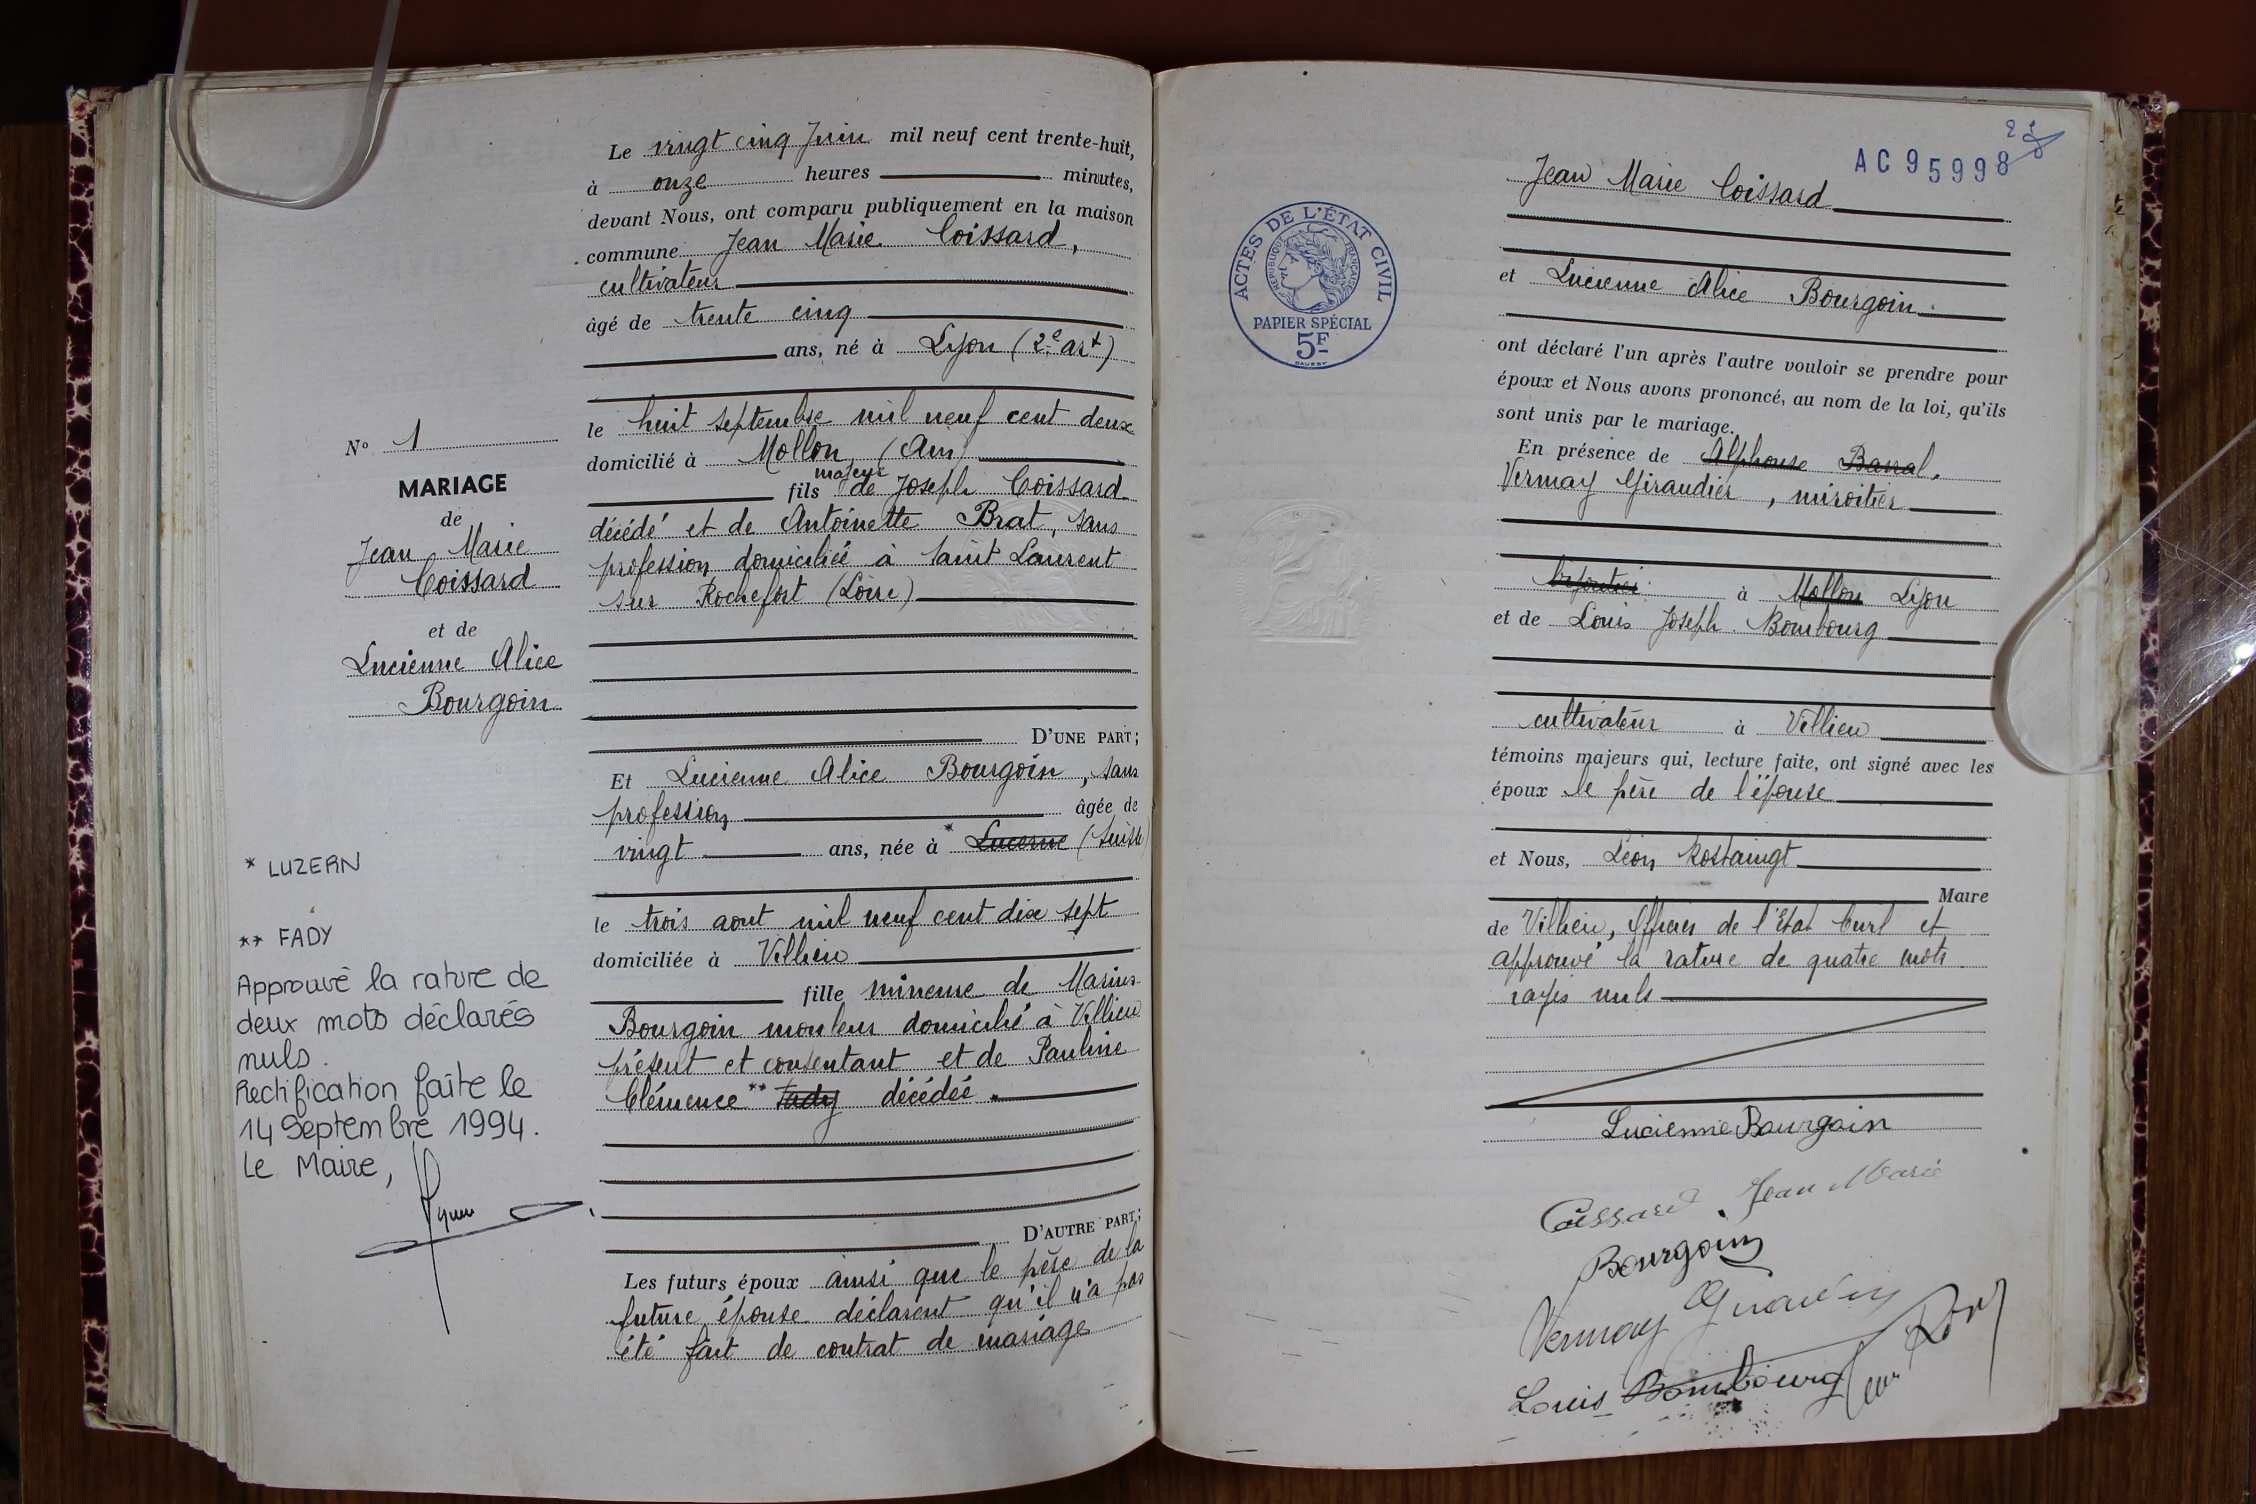 N° 1
MARIAGE
de
Jean Marie
Coissard
et de
Lucienne Alice
Bourgoin
* LUZERN
** FADY
Approuvé la rature de
deux mots déclarés
nuls.
Rectification faite le
14 Septembre 1994.
Le Maire,
Le vingt cinq Juin mil neuf cent trente-huit,
à onze heures minutes,
devant Nous, ont comparu publiquement en la maison
commune Jean Marie Coissard,
cultivateur
âgé de trente cinq
ans, né à Lyon (2e art)
le huit septembre mil neuf cent deux
domicilié à Mollon (Ain)
majeur
fils de Joseph Coissard
décédé et de Antoinette Brat, sans
profession domiciliée à Saint Laurent
sur Rochefort (Loire)
D'UNE PART;
Et Lucienne Alice Bourgoin, sans
profession âgée de
vingt ans, née à * Lucerne (Suisse)
le trois aout mil neuf cent dix sept
domiciliée à Villieu
fille mineure de Marius
Bourgoin mouleur domicilié à Villieu
présent et consentant et de Pauline
Clémence ** Fady décédée.
D'AUTRE PART;
Les futurs époux ainsi que le père de la
future épouse déclarent qu'il n'a pas
été fait de contrat de mariage
AC95998
Jean Marie Coissard
et Lucienne Alice Bourgoin
ont déclaré l'un après l'autre vouloir se prendre pour
époux et Nous avons prononcé, au nom de la loi, qu'ils
sont unis par le mariage.
En présence de Alphonse Barral,
Vermay Giraudier, miroitier
à Mollon Lyon
et de Louis Joseph Bombourg
cultivateur à Villieu
témoins majeurs qui, lecture faite, ont signé avec les
époux le père de l'épouse
et Nous, Léon Rostaingt
Maire
de Villieu, Officier de l'Etat Civil et
approuvé la rature de quatre mots
rayés nuls
Lucienne Bourgoin
Coissard Jean Marie
Bourgoin
Vermay Giraudier
Louis Bombourg
ACTES DE L'ÉTAT CIVIL
RÉPUBLIQUE FRANÇAISE
PAPIER SPÉCIAL
5F